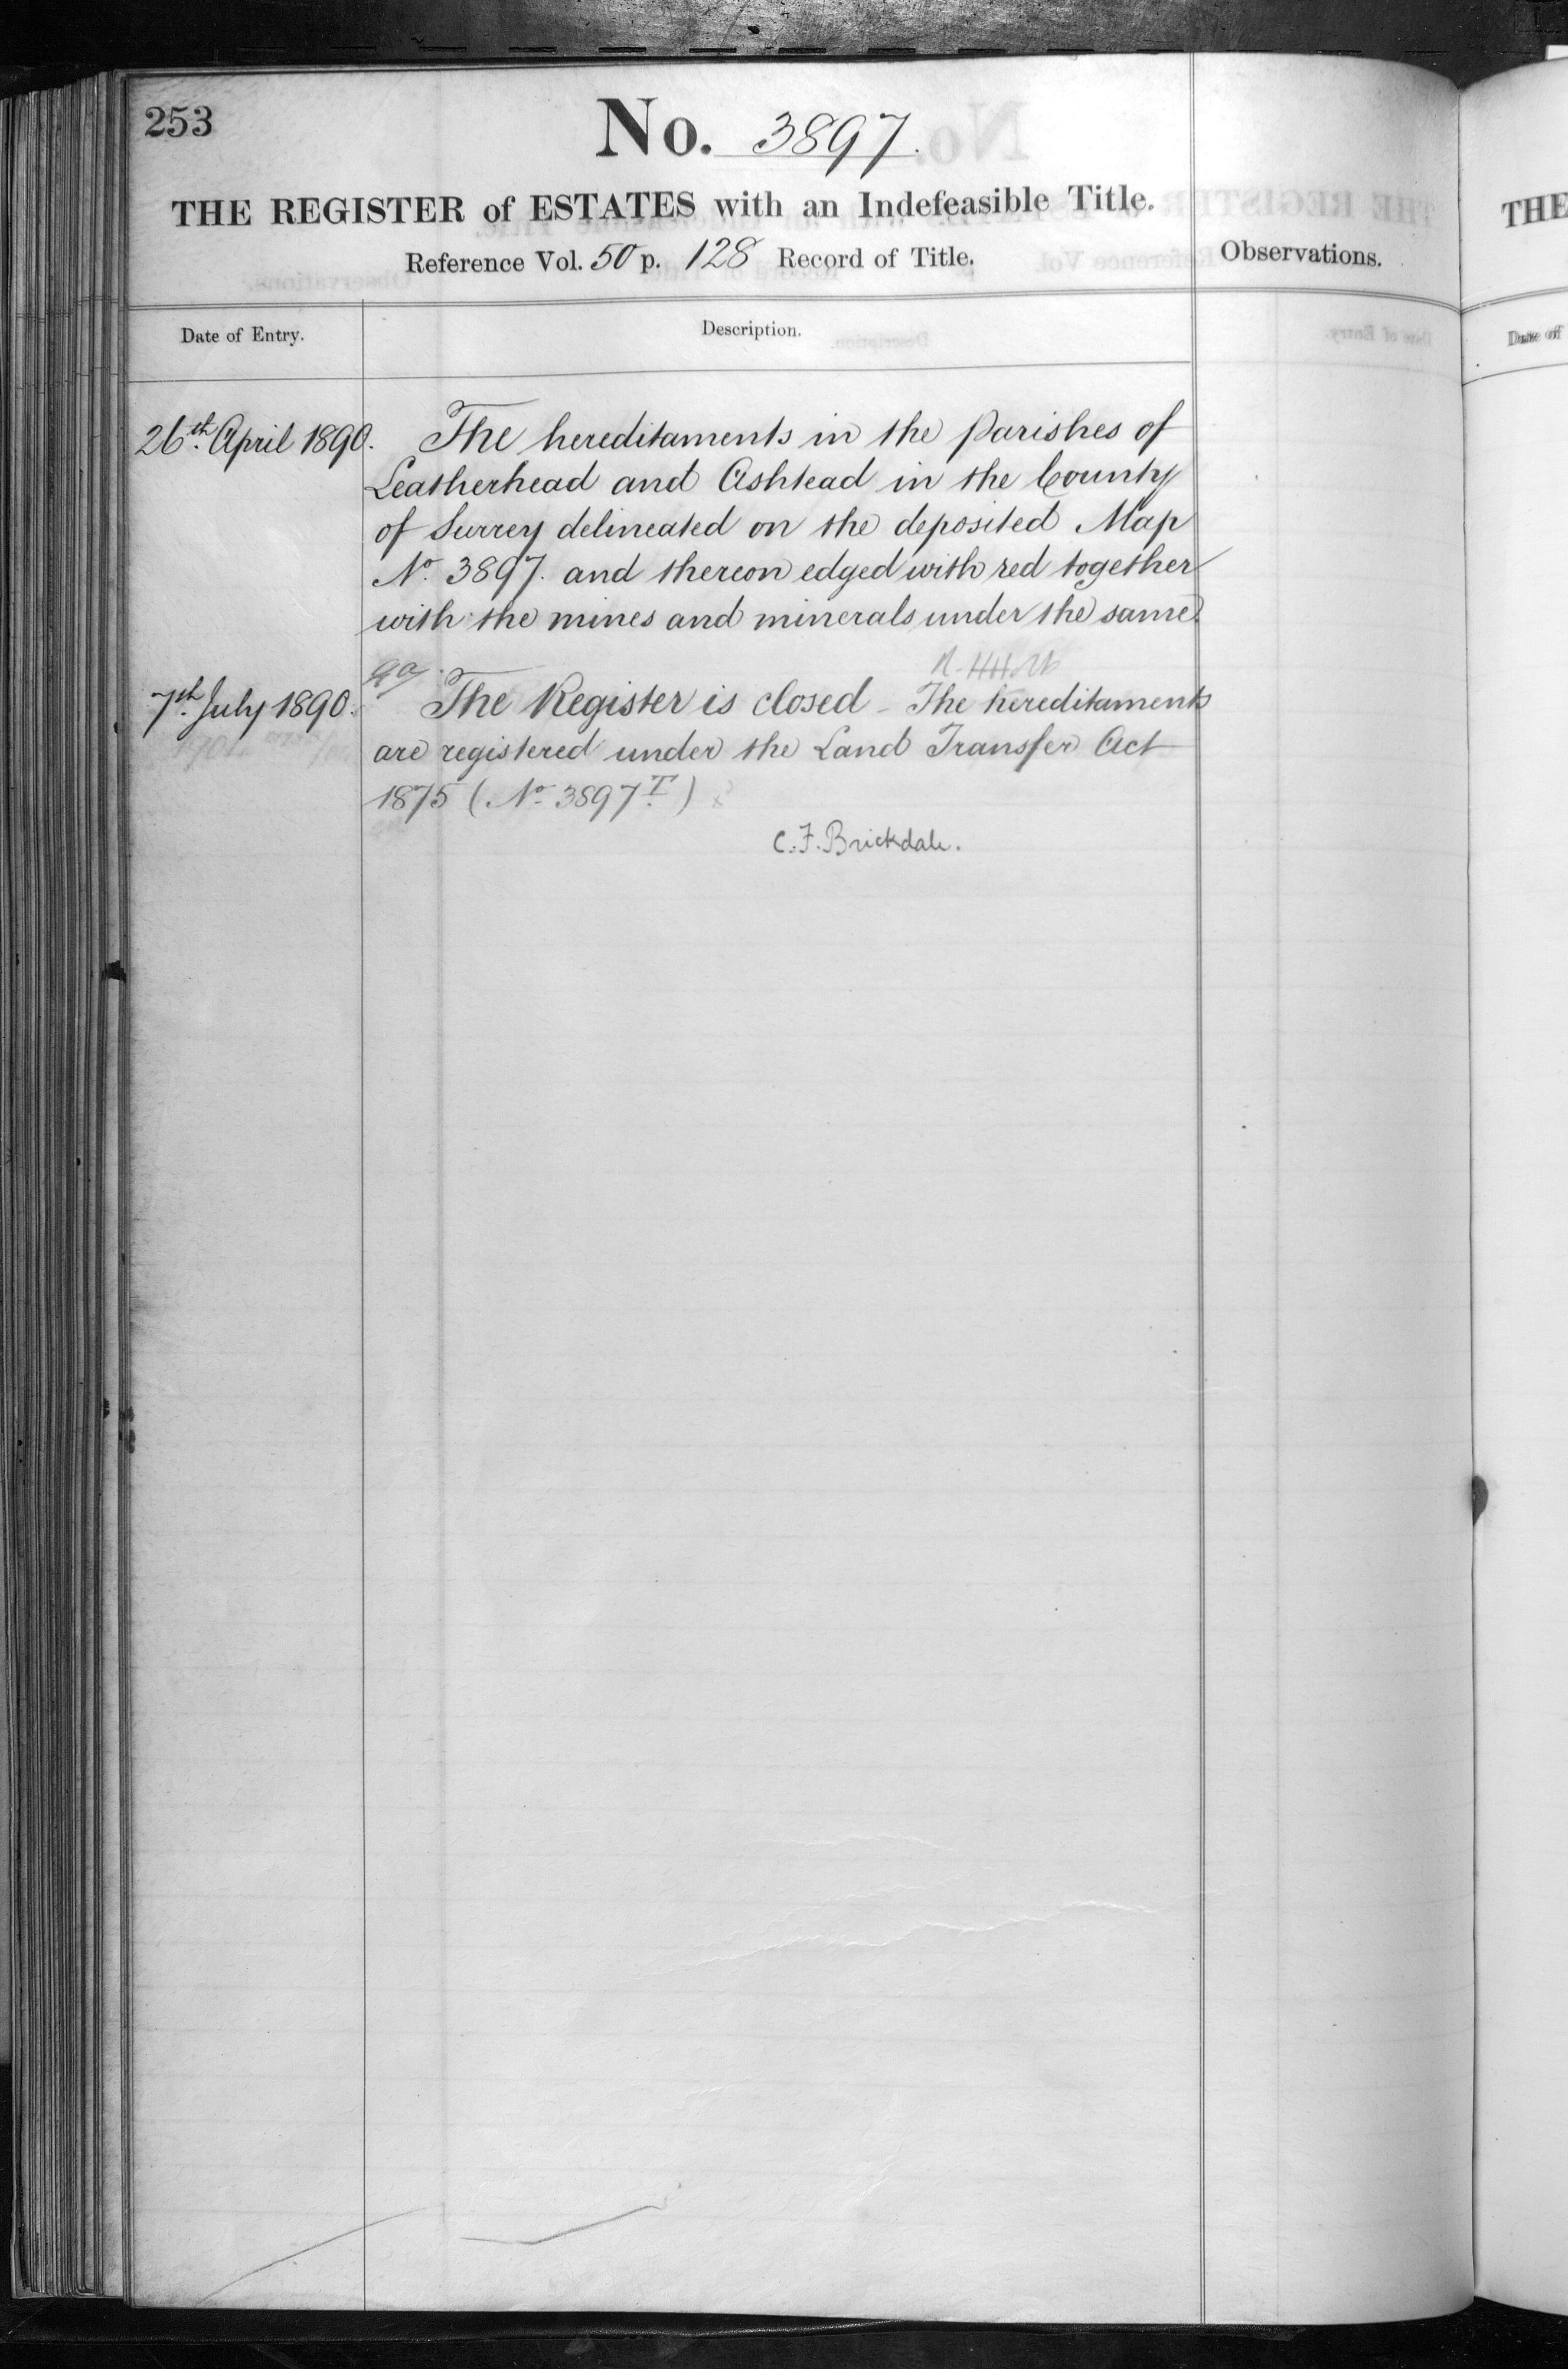 253
No. 3897.
THE REGISTER of ESTATES with an Indefeasible Title.
Reference Vol. 50 p. 128 Record of Title.
Observations.
Date of Entry.
Description.
26th April 1890.
The hereditaments in the parishes of
Leatherhead and Ashtead in the County
of Surrey delineated on the deposited Map
No. 3897. and thereon edged with red together
with the mines and minerals under the same.
7th July 1890.
The Register is closed - The hereditaments
are registered under the Land Transfer Act
1875 (No. 3897 T.)
C.F. Brickdale.
THE
Date of